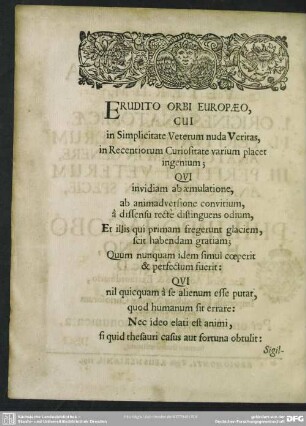 ERUDITO ORBI EUROPÆO,
CUI
in Simplicitate Veterum nuda Veritas,
in Recentiorum Curiositate varium placet
ingenium;
QVI
invidiam ab æmulatione,
ab animadversione convitium,
â dissensu rectè distinguens odium,
Et illis qui primam fregerunt glaciem,
scit habendam gratiam;
Quum nunquam idem simul cœperit
& perfectum fuerit:
QVI
nil quicquam â se alienum esse putat,
quod humanum sit errare:
Nec ideo elati est animi,
si quid thesauri casus aut fortuna obtulit:
Sigil-